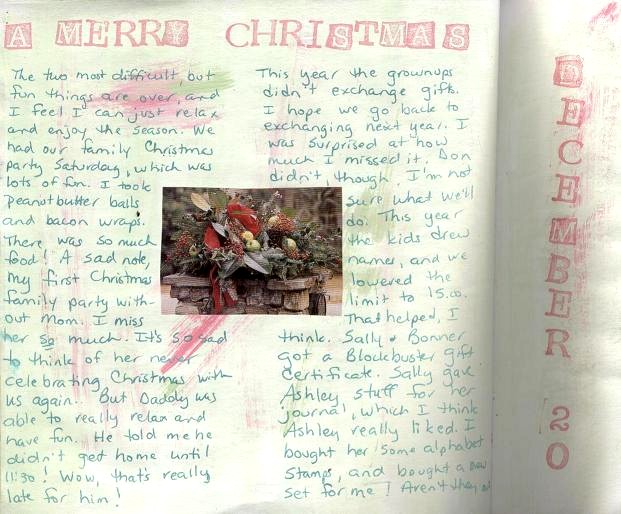 A MERRY CHRISTMAS
The two most difficult but
fun things are over, and
I feel I can just relax
and enjoy the season. We
had our family Christmas
party Saturday, which was
lots of fun. I took
peanutbutter balls
and bacon wraps.
There was so much
food! A sad note,
my first Christmas
family party with-
out Mom. I miss
her so much. It's so sad
to think of her never
celebrating Christmas with
us again. But Daddy was
able to really relax and
have fun. He told me he
didn't get home until
11:30! Wow, that's really
late for him!
This year the grownups
didn't exchange gifts.
I hope we go back to
exchanging next year. I
was surprised at how
much I missed it. Don
didn't, though. I'm not
sure what we'll
do. This year
the kids drew
names, and we
lowered the
limit to 15.00.
That helped, I
think. Sally & Bonner
got a Blockbuster gift
certificate. Sally gave
Ashley stuff for her
journal, which I think
Ashley really liked. I
bought her some alphabet
stamps, and bought a new
set for me! Aren't they
DECEMBER 20